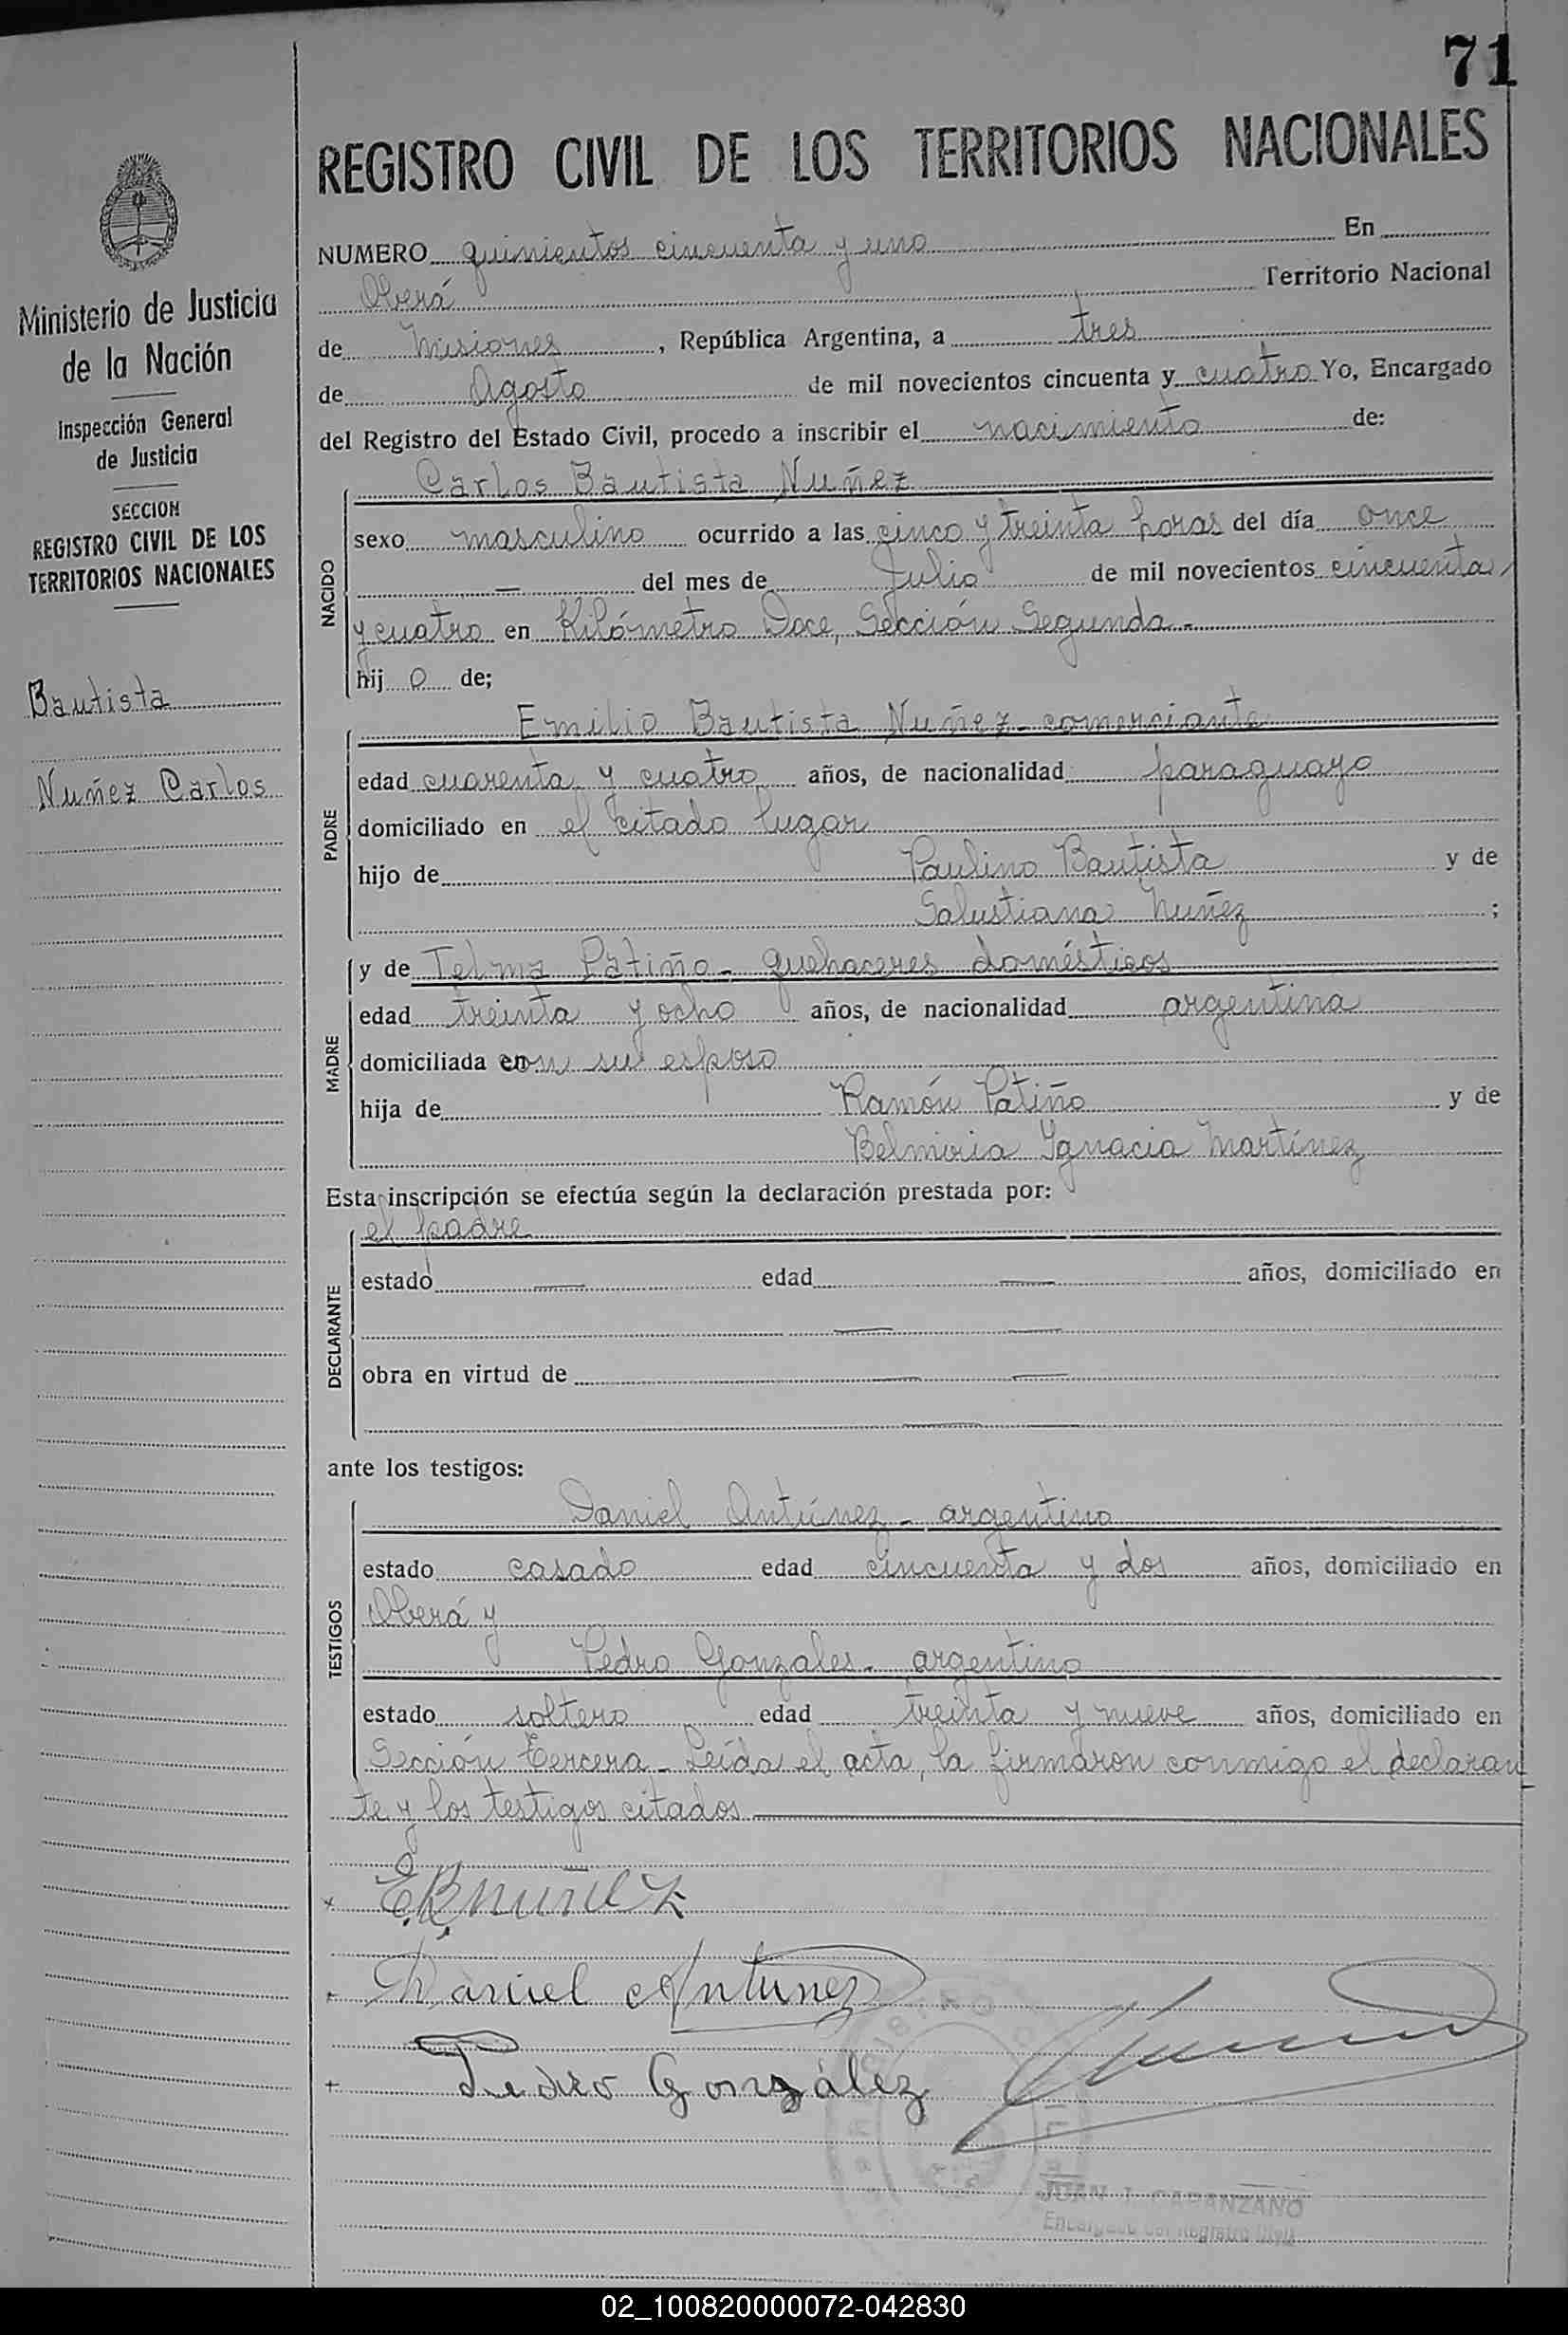 71
REGISTRO CIVIL DE LOS TERRITORIOS NACIONALES
Ministerio de Justicia
de la Nación
Inspección General
de Justicia
SECCION
REGISTRO CIVIL DE LOS
TERRITORIOS NACIONALES
Bautista
Nuñez Carlos
NUMERO quinientos cincuenta y uno En
Oberá Territorio Nacional
de Misiones, República Argentina, a tres
de Agosto de mil novecientos cincuenta y cuatro Yo, Encargado
del Registro del Estado Civil, procedo a inscribir el nacimiento de:
NACIDO
Carlos Bautista Nuñez
sexo masculino ocurrido a las cinco y treinta horas del día once
— del mes de Julio de mil novecientos cincuenta
y cuatro en Kilómetro Doce, Sección Segunda.-
hij o de;
PADRE
Emilio Bautista Nuñez - comerciante
edad cuarenta y cuatro años, de nacionalidad paraguayo
domiciliado en el citado lugar
hijo de Paulino Bautista y de
Salustiana Nuñez ;
MADRE
y de Telma Patiño - quehaceres domésticos
edad treinta y ocho años, de nacionalidad argentina
domiciliada en con su esposo
hija de Ramón Patiño y de
Belmiria Ygnacia Martínez
Esta inscripción se efectúa según la declaración prestada por:
DECLARANTE
el padre
estado — edad — años, domiciliado en
— —
obra en virtud de — —
—
ante los testigos:
TESTIGOS
Daniel Antúnez - argentino
estado casado edad cincuenta y dos años, domiciliado en
Oberá y
Pedro Gonzales - argentino
estado soltero edad treinta y nueve años, domiciliado en
Sección tercera - Leída el acta, la firmaron conmigo el declaran
te y los testigos citados
E.B. Nuñez
Daniel Antunez
Pedro González
JUAN
Encargado del Registro Civil
02_100820000072-042830